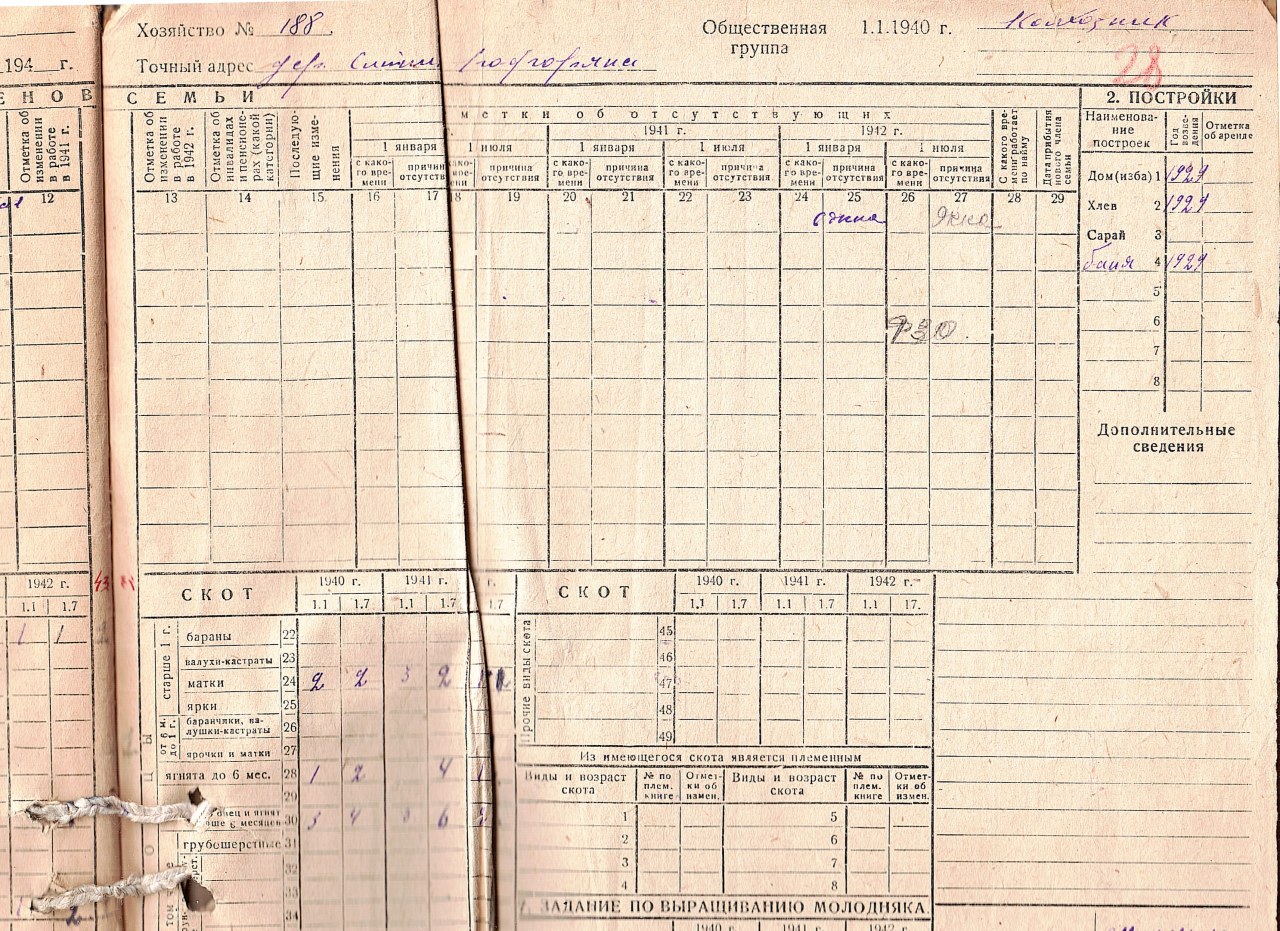 Хозяйство № 188.
Общественная группа 1.1.1940 г. Колхозник
194 г.
Точный адрес дер.
28
ЕНОВ СЕМЬИ
2. ПОСТРОЙКИ
Отметка об изменении в работе в 1941 г.
Отметка об изменении в работе в 1942 г.
Отметка об инвалидах и пенсионерах (какой категории)
Последующие изменения
метки об отсутствующих
г. 1941 г. 1942 г.
1 января 1 июля 1 января 1 июля 1 января 1 июля
с какого времени причина отсутств
причина отсутствия
с какого времени причина отсутствия
с какого времени причина отсутствия
с какого времени причина отсутствия
с какого времени причина отсутствия
С какого времени работает по найму
Дата прибытия нового члена семьи
Наименование построек Год возведения Отметка об аренде
12 13 14 15 16 17 18 19 20 21 22 23 24 25 26 27 28 29
Дом (изба) 1 1929
Хлев 2 1929
Сарай 3
баня 4 1929
5
6
7
8
РЗО.
Дополнительные сведения
1942 г.
1.1 1.7
1 1
43
СКОТ 1940 г. 1941 г. г.
1.1 1.7 1.1 1.7 1.7
старше 1 г.
бараны 22
валухи-кастраты 23
матки 24 2 2 3 2
ярки 25
от 6 м. до 1 г.
баранчики, валушки-кастраты 26
ярочки и матки 27
ягнята до 6 мес. 28 1 2 4 1
29
овец и ягнят
ше 6 месяцев 30 3 4 3 6
грубошерстные 31
32
33
34
2
СКОТ 1940 г. 1941 г. 1942 г.
1.1 1.7 1.1 1.7 1.1 17.
Прочие виды скота
45
46
47
48
49
Из имеющегося скота является племенным
Виды и возраст скота № по плем. книге Отметки об измен. Виды и возраст скота № по плем. книге Отметки об измен.
1 5
2 6
3 7
4 8
ЗАДАНИЕ ПО ВЫРАЩИВАНИЮ МОЛОДНЯКА.
1940 г. 1941 г. 1942 г.